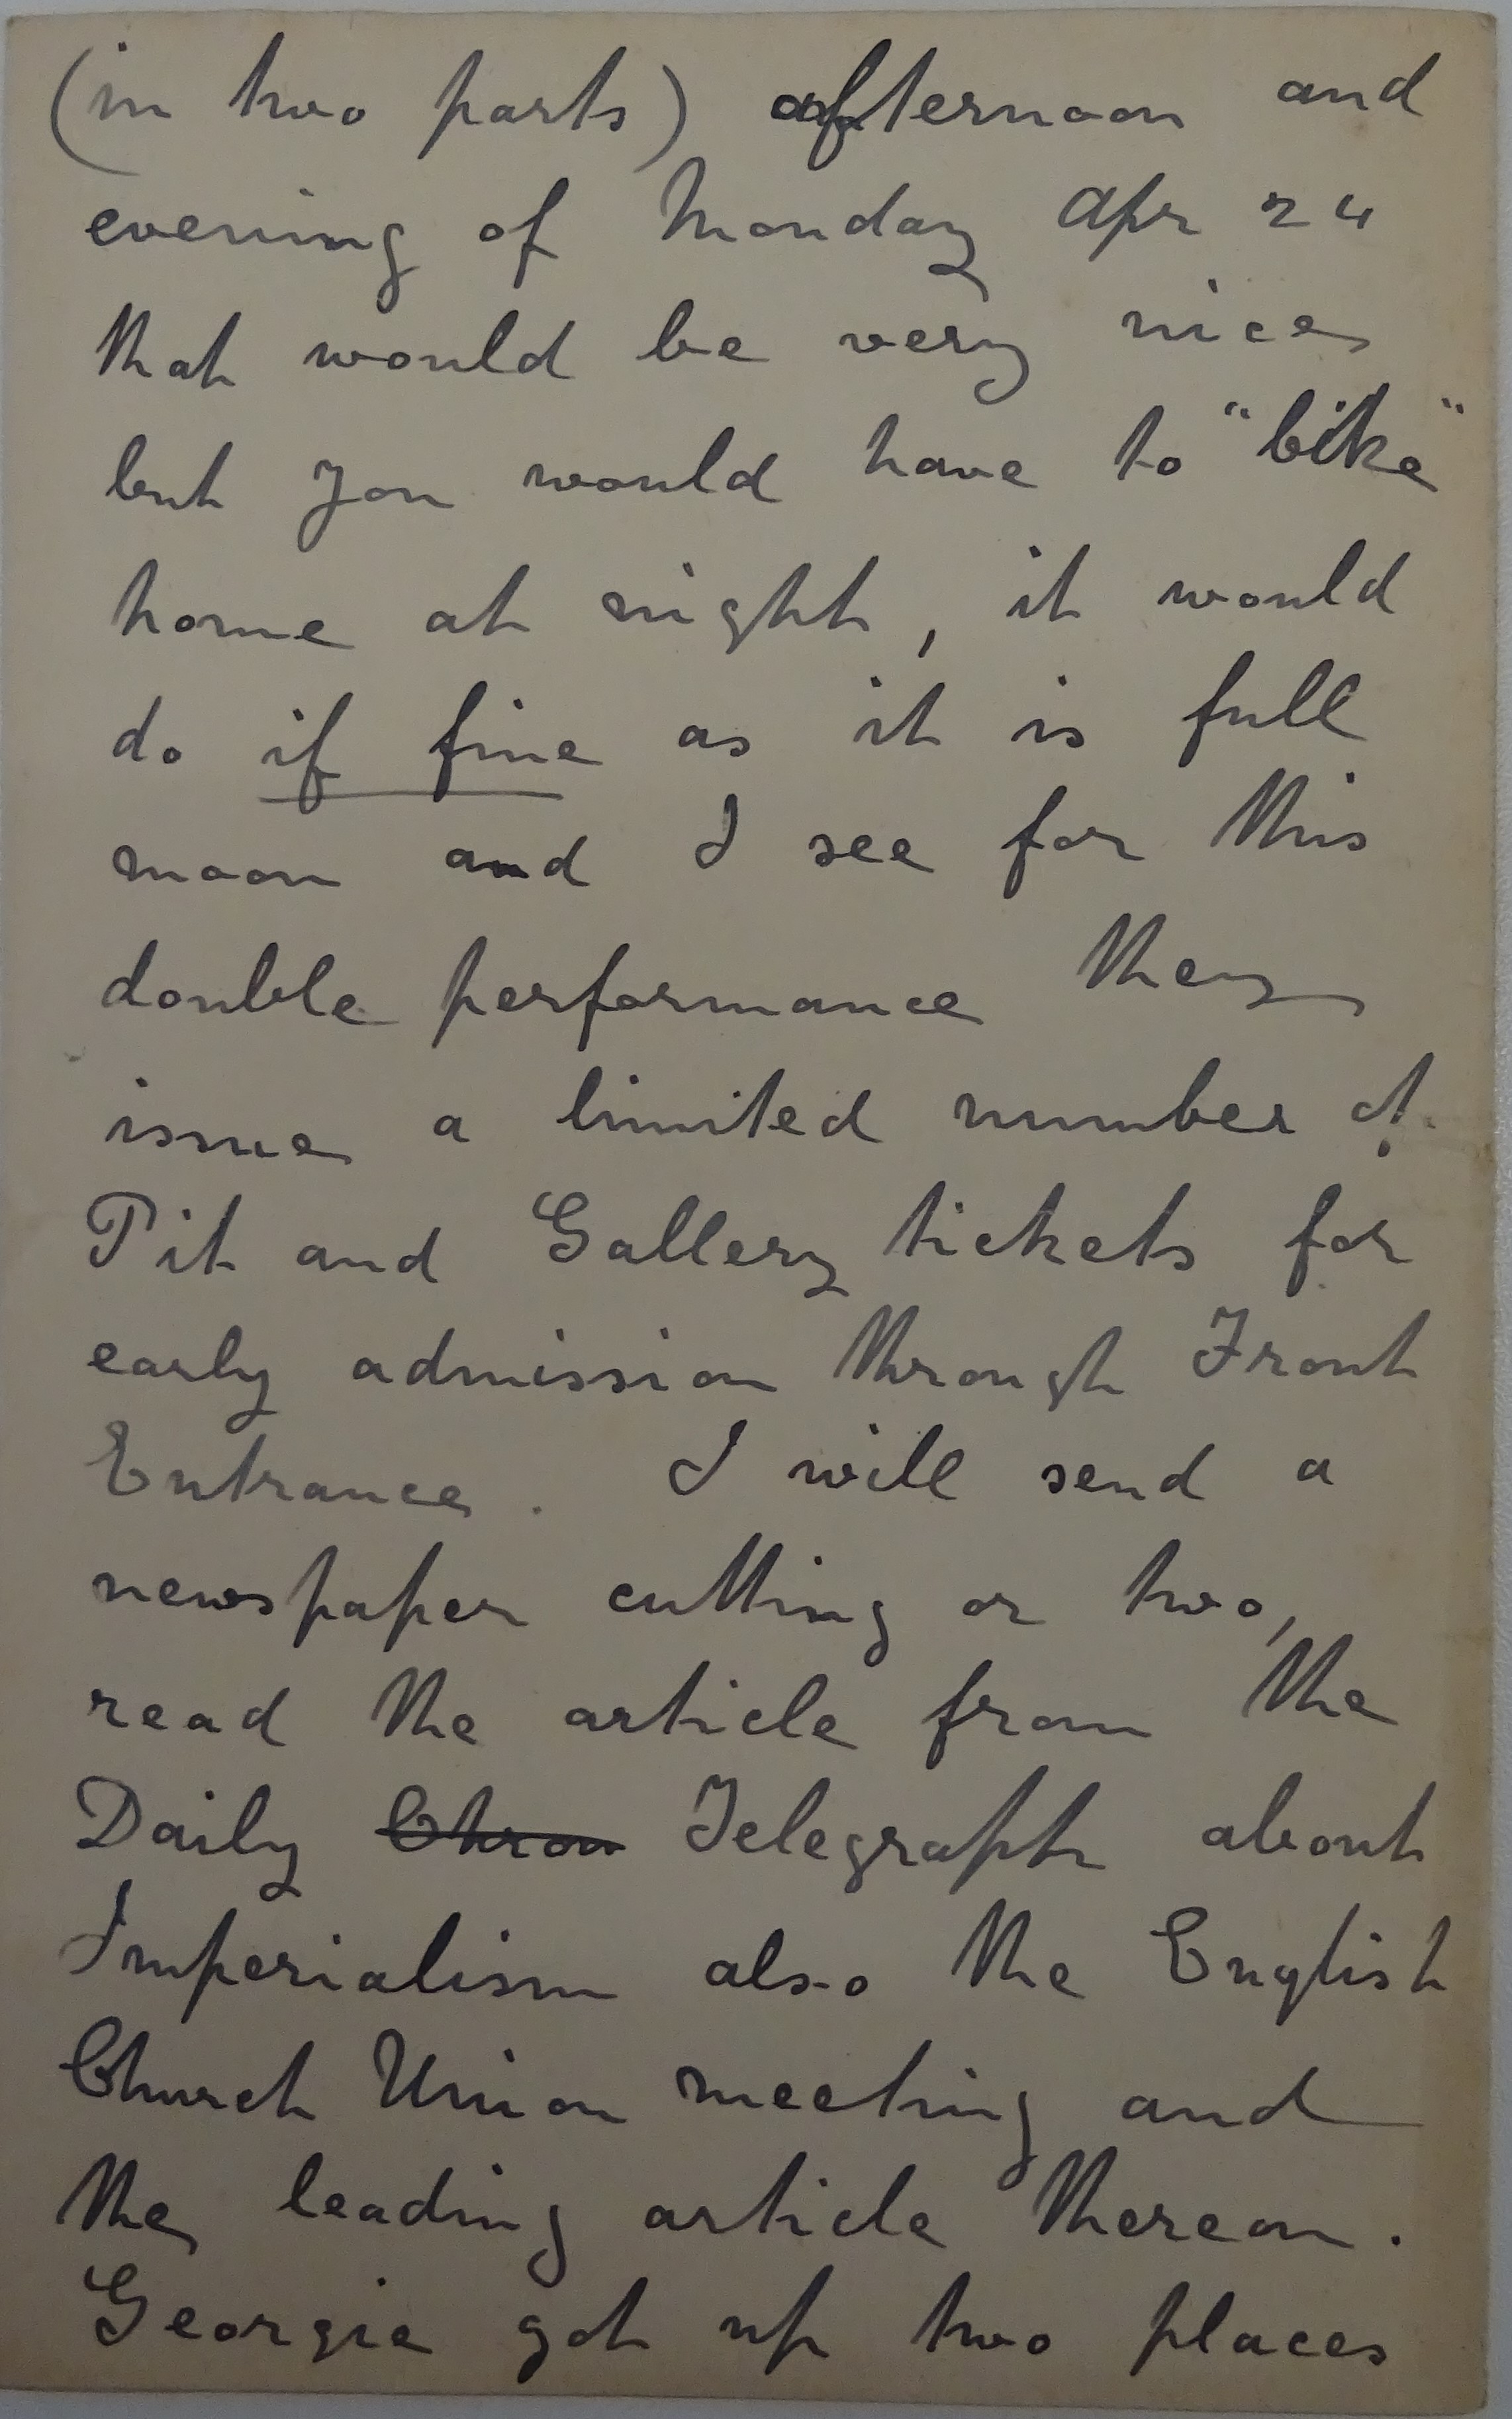 (in two parts) afternoon and
evening of Monday Apr 24
that would be very nice
but you would have to "bike"
home at night, it would
do if fine as it is full
moon and I see for this
double performance they
issue a limited number of
Pit and Gallery tickets for
early admission through Front
Entrance. I will send a
newspaper cutting or two,
read the article from the
Daily Chron Telegraph about
Imperialism also the English
Church Union meeting and
the leading article thereon.
Georgie got up two places